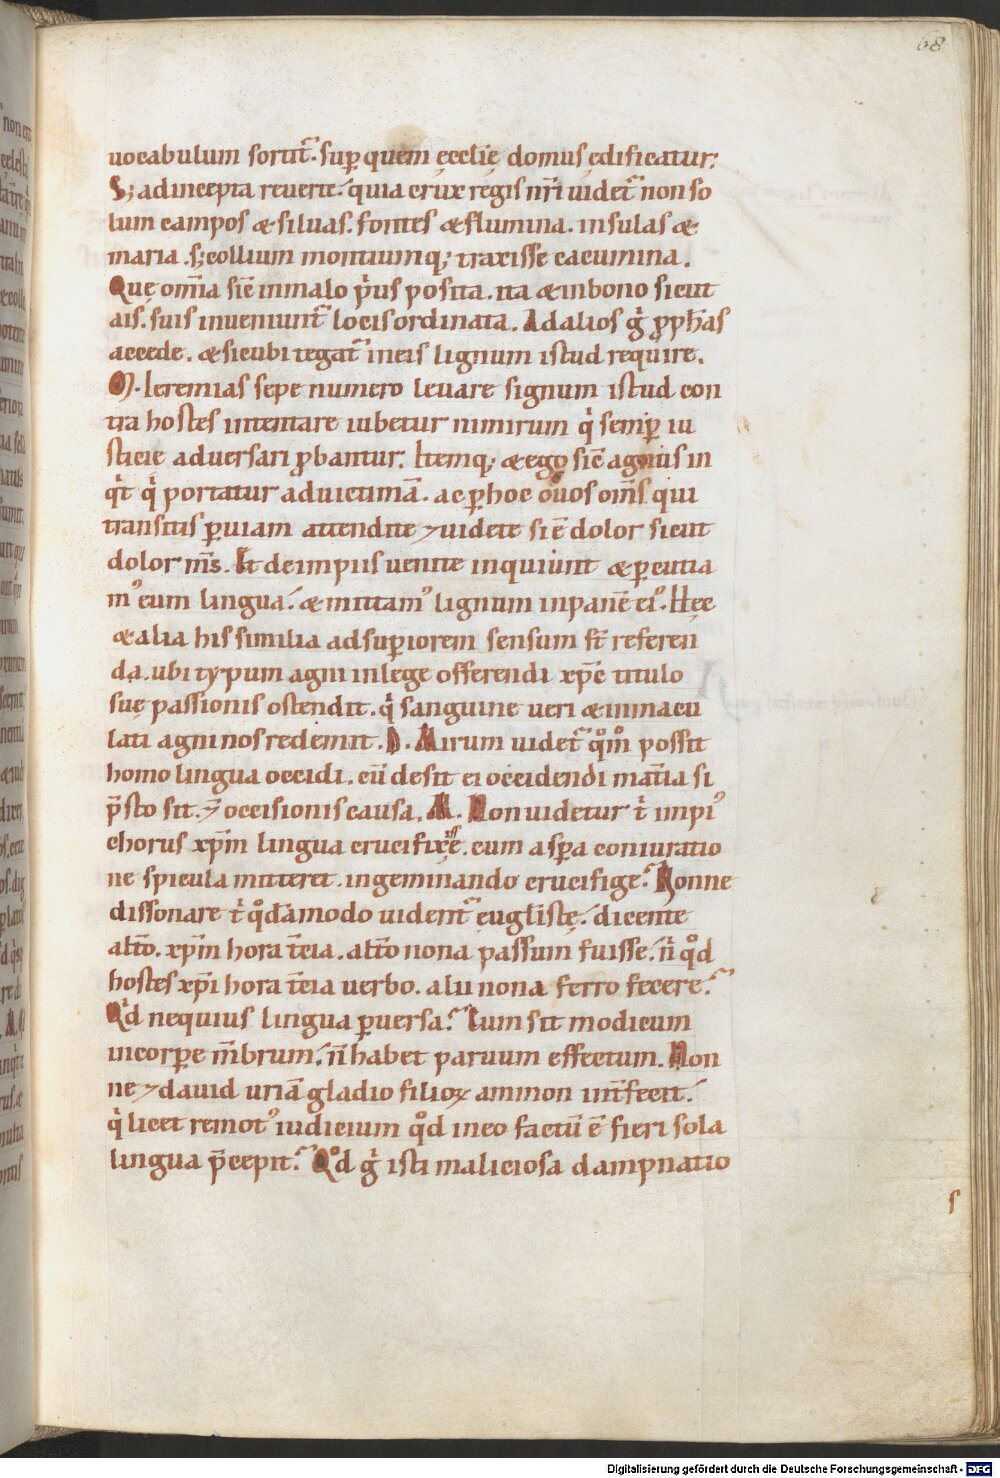 68
uocabulum sortit᷑. sup̱ quem ęcclię domus ędificatur;
S; ad incepta reuert́e. quia crux regis nr̄i uidet᷑ non so
lum campos & siluas. fontes & flumina. insulas &
maria. s; collium montiumq; traxisse cacumina.
Quę om̄ia sic̄ in malo pͥus posita. ita & in bono sicut
ais. suis inueniunt᷑ locis ordinata. Ad alios gͥ ꝓph̄as
accede. & sicubi tegat᷑ in eis lignum istud require.
M. Ieremias sepe numero leuare signum istud con
tra hostes intentare iubetur nimirum qͥ semp̱ iu
sticię aduersari ꝓbantur. Itemq; & ego sic̄ agnus in
qͥt qͥ portatur ad uictimā. ac p̱ hoc o uos om̄s qui
transitis p̱ uiam attendite ⁊ uidete si ē dolor sicut
dolor m̄s. Et de impiis uenite inquiunt & p̱cutia
m᷒ eum lingua. & mittam᷒ lignum in panē ei᷒. Hęc
& alia his similia ad sup̱iorem sensum st̄ referen
da. ubi typum agni in lege offerendi xp̄c titulo
suę passionis ostendit. qͥ sanguine ueri & inmacu
lati agni nos redemit. D. Mirum uidet᷑ qͦm̊ possit
homo lingua occidi. cū desit ei occidendi mat̄ia si
p̄sto sit. ⁊̄ occisionis causa. M. Non uidetur tͥ impi᷒
chorus xp̄m lingua crucifixisse. cum asp̱a coniuratio
ne spicula mitteret. ingeminando crucifige? Nonne
dissonare tͥ qͦdāmodo uident᷑ euḡlistę. dicente
alt̄o. xp̄m hora t̄cia. alt̄o nona passum fuisse. n̄ qͦd
hostes xp̄i hora t̄cia uerbo. alii nona ferro fecere?
Qͥd nequius lingua p̱uersa? Cum sit modicum
in corp̱e m̄brum. n̄ habet paruum effectum. Non
ne ⁊ dauid uriā gladio filioꝝ ammon int̄fecit.
qͥ licet remot᷒ iudicium qͦd in eo factū ē fieri sola
lingua p̄cepit? Qͦd gͥ isti maliciosa dampnatio
Digitalisierung gefördert durch die Deutsche Forschungsgemeinschaft - DFG